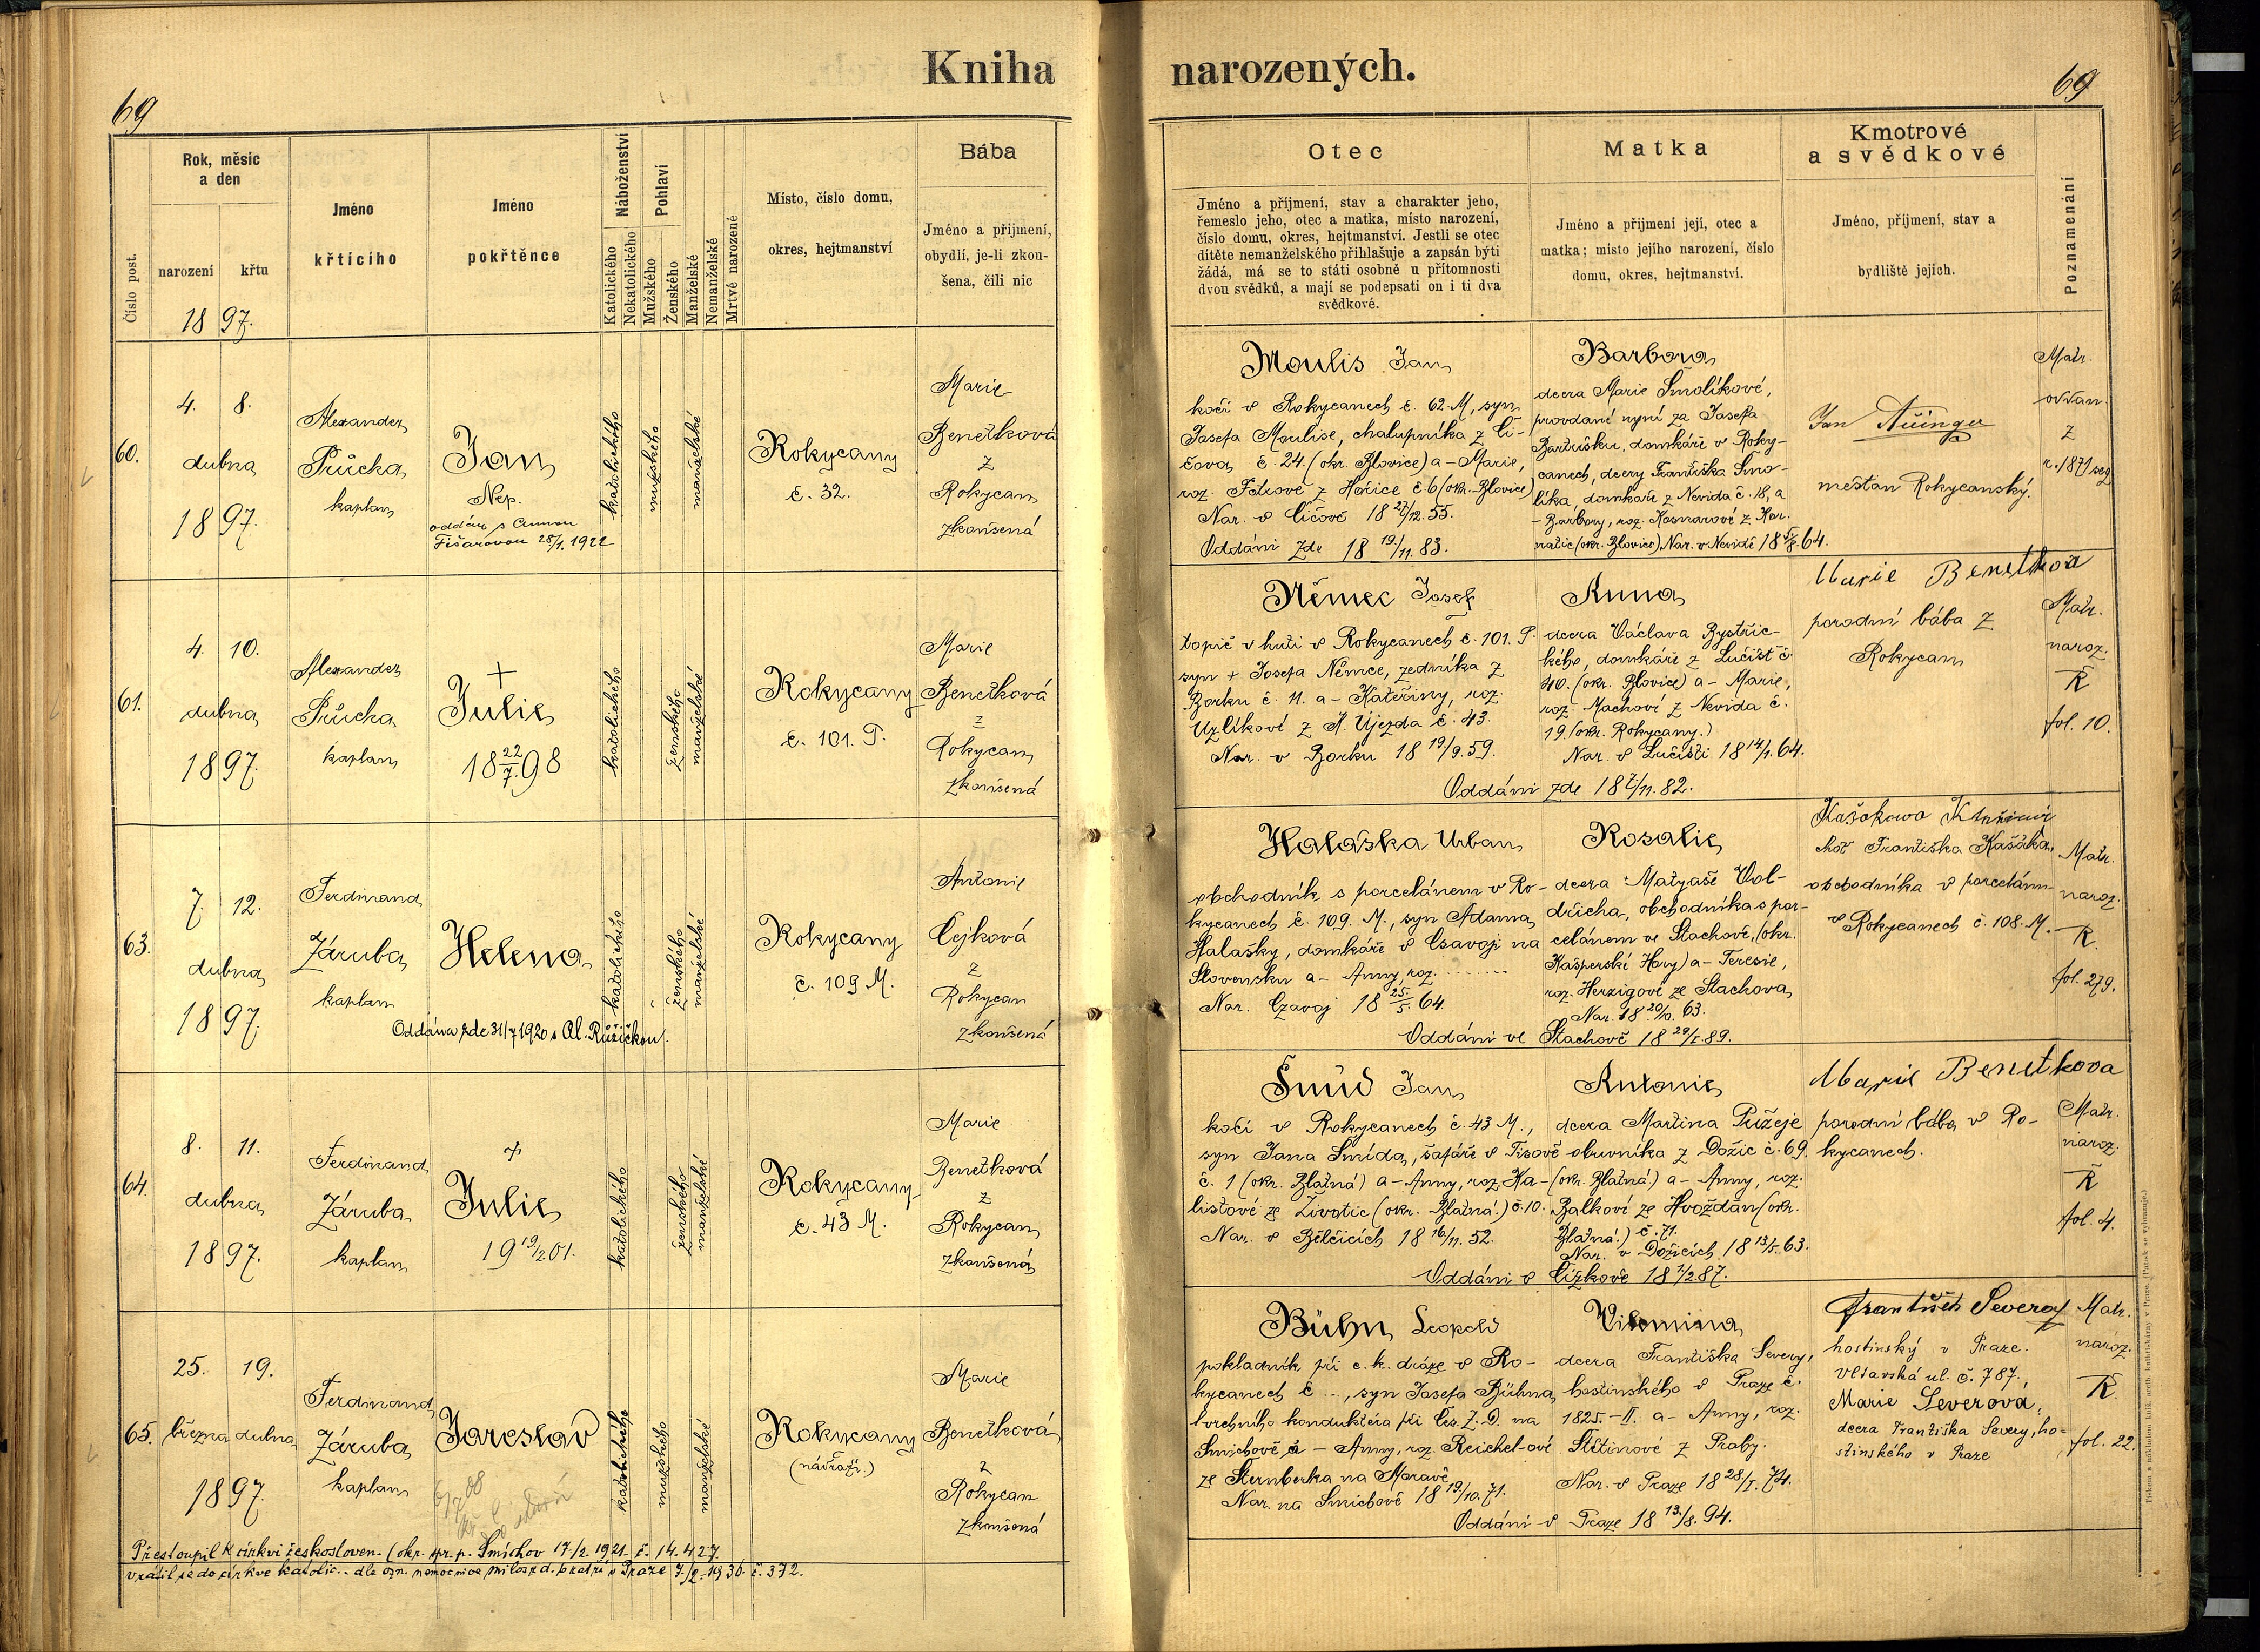 Kniha
narozených.
69
69
Číslo post.
Rok, měsíc
a den
narození
křtu
1897.
Jméno
křtícího
Jméno
pokřtěnce
Náboženství
Katolického
Nekatolického
Pohlaví
Mužského
Ženského
Manželské
Nemanželské
Mrtvě narozené
Místo, číslo domu,
okres, hejtmanství
Bába
Jméno a přijmení,
obydlí, je-li zkou-
šena, čili nic
Otec
Jméno a příjmení, stav a charakter jeho,
řemeslo jeho, otec a matka, místo narození,
číslo domu, okres, hejtmanství. Jestli se otec
dítěte nemanželského přihlašuje a zapsán býti
žádá, má se to státi osobně u přítomnosti
dvou svědků, a mají se podepsati on i ti dva
svědkové.
Matka
Jméno a přijmení její, otec a
matka; místo jejího narození, číslo
domu, okres, hejtmanství.
Kmotrové
a svědkové
Jméno, příjmení, stav a
bydliště jejich.
Poznamenání
60.
4. 8.
dubna
1897.
Alexander
Průcha
kaplan
Jan
Nep.
oddán s Annou
Fišarovou 28/1. 1922
katolického
mužského
manželské
Rokycany
č. 32.
Marie
Benetková
z
Rokycan
zkoušená
Moulis Jan
kočí v Rokycanech č. 62. M, syn
Josefa Moulise, chalupníka z Čí-
čova č. 24. (okr. Blovice) a Marie,
roz. Fdrové z Hořice č. 6 (okr. Blovice)
Nar. v Číčově 18 27/12. 55.
Oddáni zde 18 19./11. 83.
Barbora
dcera Marie Smolíkové,
provdané nyní za Josefa
Bartušku, domkáře v Roky-
canech, dcery Františka Smo-
líka, domkáře z Nevida č. 18, a
Barbory, roz. Kosnarové z Hor.
(okr. Blovice) Nar. v Nevidě 18 64.
Jan
měšťan Rokycanský.
Matr.
oddan.
z
r. 1871 seq
61.
4. 10.
dubna
1897.
Alexander
Průcha
kaplan
+
Julie
18 22/7. 98
katolického
ženského
manželské
Rokycany
č. 101. P.
Marie
Benetková
z
Rokycan
zkoušená
Němec Josef
topič v huti v Rokycanech č. 101. P.
syn + Josefa Němce, zedníka z
Borku č. 11. a Kateřiny, roz.
Uzlíkové z K. Újezda č. 43.
Nar. v Borku 18 19/9. 59.
Anna
dcera Václava Bystřic-
kého, domkáře z Lučišť č.
40. (okr. Blovice) a Marie,
roz. Machové z Nevida č.
19. (okr. Rokycany.)
Nar. v Lučišti 18 14/1. 64.
Oddáni zde 18 7./11. 82.
Marie Benetková
porodní bába z
Rokycan
Matr.
naroz.
Ř
fol. 10.
63.
7. 12.
dubna
1897.
Ferdinand
Záruba
kaplan
Helena
Oddána zde 31/7 1920 s Al. Růžičkou.
katolického
ženského
manželské
Rokycany
č. 109 M.
Antonie
Cejková
z
Rokycan
zkoušená
Halaška Urban
obchodník s porcelánem v Ro-
kycanech č. 109. M., syn Adama
Halašky, domkáře v Csavoji na
Slovensku a Anny, roz. ........
Nar. Czavoj 18 25./5. 64.
Rosalie
dcera Matyaše Vol-
dřicha, obchodníka s por-
celánem ve Stachově, (okr.
Kašperské Hory) a Teresie,
roz. Herzigové ze Stachova
Nar. 18 63.
Oddáni ve Stachově 18 29/I. 89.
choť Františka Kašáka,
obchodníka v porcelánu
v Rokycanech č. 108. M.
Matr.
naroz.
Ř.
fol. 279.
64.
8. 11.
dubna
1897.
Ferdinand
Záruba
kaplan
+
Julie
19 19/2 01.
katolického
ženského
manželské
Rokycany
č. 43 M.
Marie
Benetková
z
Rokycan
zkoušená
Šmíd Jan
kočí v Rokycanech č. 43 M.,
syn Jana Šmída, šafáře v Tisově
č. 1 (okr. Blatná) a Anny, roz. Ha-
listové ze Životic (okr. Blatná.) č. 10.
Nar. v Bělčicích 18 16/11. 52.
Antonie
dcera Martina Pužeje
obuvníka z Dožic č. 69.
(okr. Blatná.) a Anny, roz.
Balkové ze Hvožďan (okr.
Blatná.) č. 71.
Nar. v Dožicích 18 13/5. 63.
Oddáni v Čížkově 18 1/2. 87.
Marie Benetkova
porodní bába v Ro-
kycanech.
Matr.
naroz.
Ř
fol. 4.
65.
25. 19.
března dubna
1897.
Ferdinand
Záruba
kaplan
Jaroslav
katolického
mužského
manželské
Rokycany
(nádraží.)
Marie
Benetková
z
Rokycan
zkoušená
Přestoupil k církvi českosloven. (okr. spr. p. Smíchov 17./2. 1921. č. 14.427.
vrátil se do církve katolic. dle ozn. nemocnice milosrd. bratří v Praze 7./2. 1936. č. 372.
Bühn Leopold
pokladník při c. k. dráze v Ro-
kycanech č. .., syn Josefa Bühna,
vrchního konduktéra při Čes. Z. D. na
Smíchově a Anny, roz. Reichel-ové
ze Šternberka na Moravě
Nar. na Smíchově 18 19/10. 71.
Vilemina
dcera Františka Severy,
hostinského v Praze č.
1825.-II. a Anny, roz.
Štětinové z Prahy.
Nar. v Praze 18 28/I. 74.
Oddáni v Praze 18 13./8. 94.
František Severa
hostinský v Praze.
Vltavská ul. č. 787.
Marie Severová,
dcera Františka Severy, ho-
stinského v Praze
Matr.
naroz.
Ř.
fol. 22.